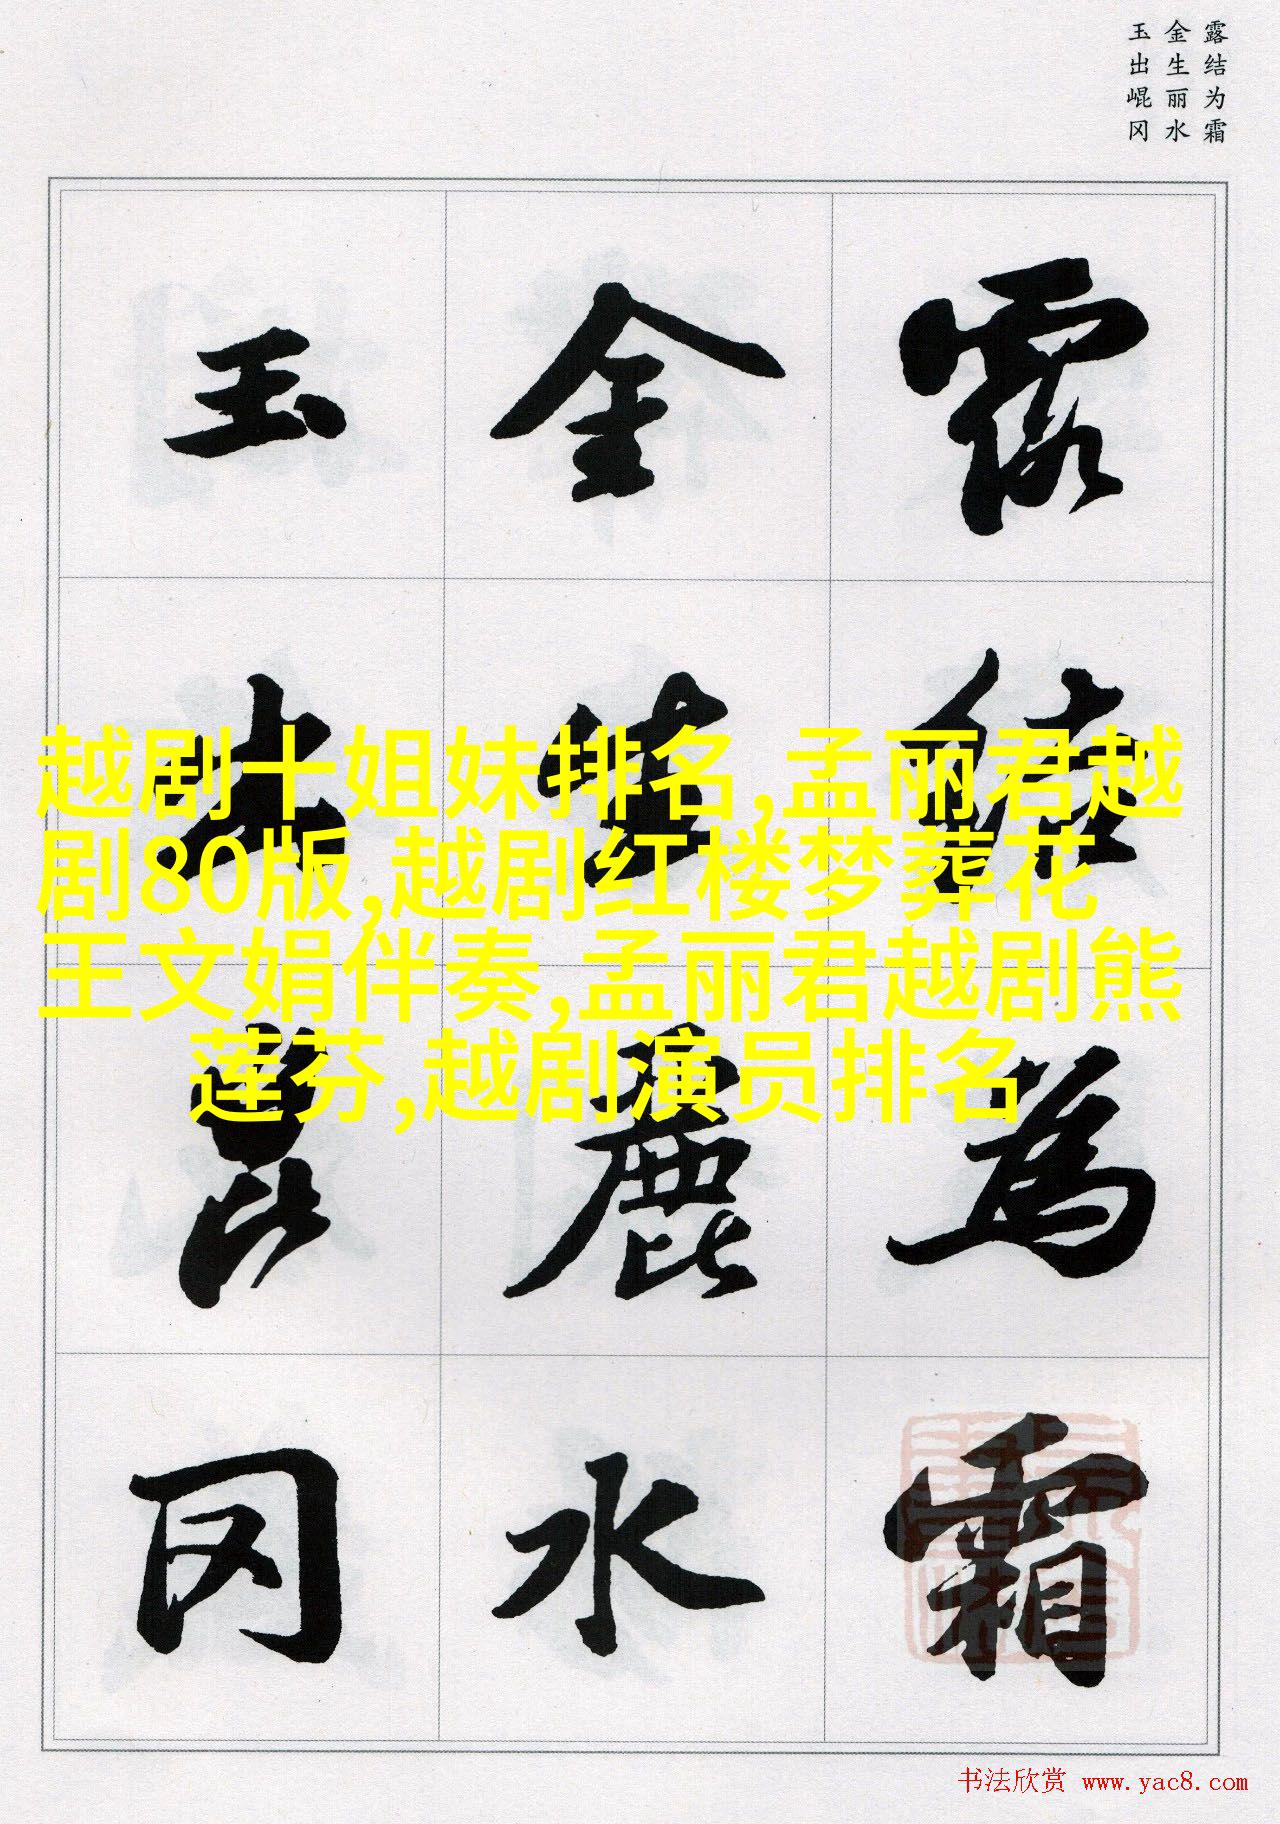 露结为霜
金生丽水
玉出崐冈
露結為霜
金生麗水
玉出崑冈
越剧十姐妹排名,孟丽君越
剧80版,越剧红楼梦葬花
王文娟伴奏,孟丽君越剧熊
莲芬,越剧演员排名
书法欣赏 www.yac8.com